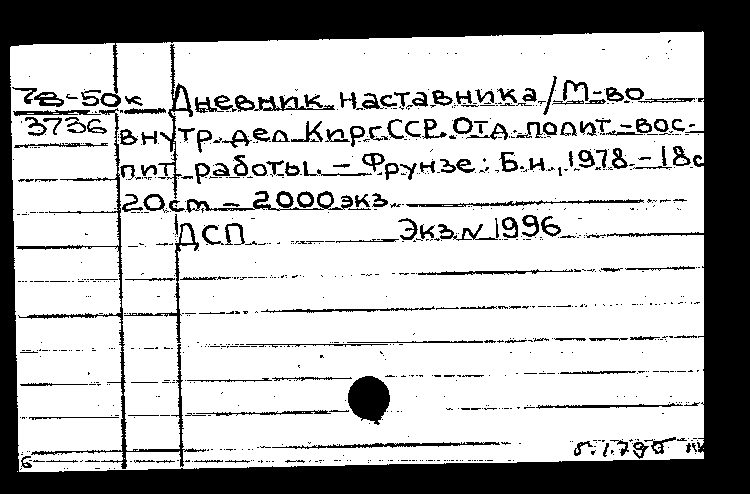 78-50к Дневник наставника/М-во
3736 внутр. дел КиргССР. Отд. полит-вос-
пит работы. – Фрунзе: Б.н., 1978 – 18с
20см – 2000экз.
ДСП. Экз.N 1996
6